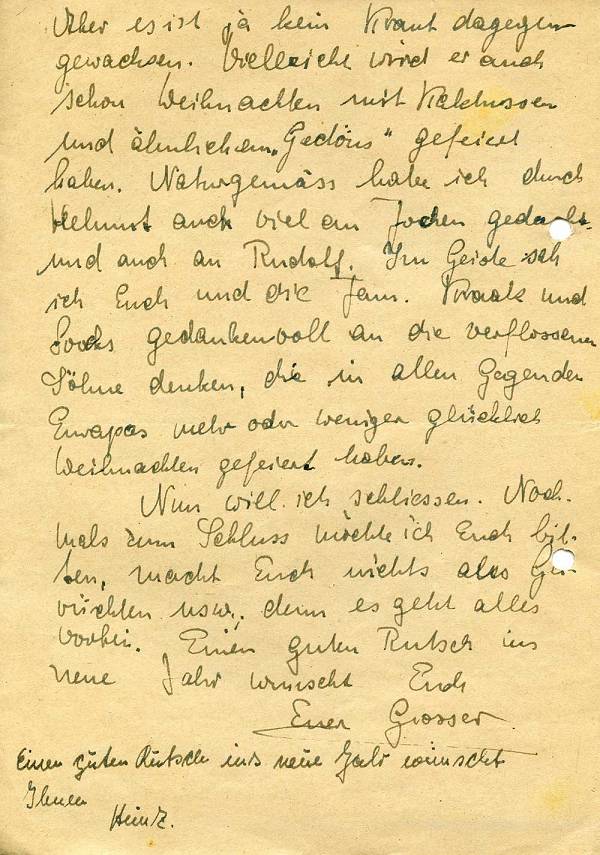 Aber es ist ja kein Kraut dagegen
gewachsen. Vielleicht wird er auch
schon Weihnachten mit Keksdosen
und ähnlichem „Gedöns“ gefeiert
haben. Naturgemäss habe ich durch
Helmut auch viel an Jochen gedacht
und auch an Rudolf. Im Geiste seh
ich Euch und die Fam. Kraak und
gedankenvoll an die verflossenen
Söhne denken, die in allen Gegenden
Europas mehr oder weniger glücklich
Weihnachten gefeiert haben.
Nun will ich schliessen. Noch-
mals zum Schluss möchte ich Euch bit-
ten, macht Euch nichts aus Ge-
rüchten usw., denn es geht alles
vorbei. Einen guten Rutsch ins
neue Jahr wünscht Euch
Euer Grosser.
Einen guten Rutsch ins neue Jahr wünscht
Ihnen
Heinz.